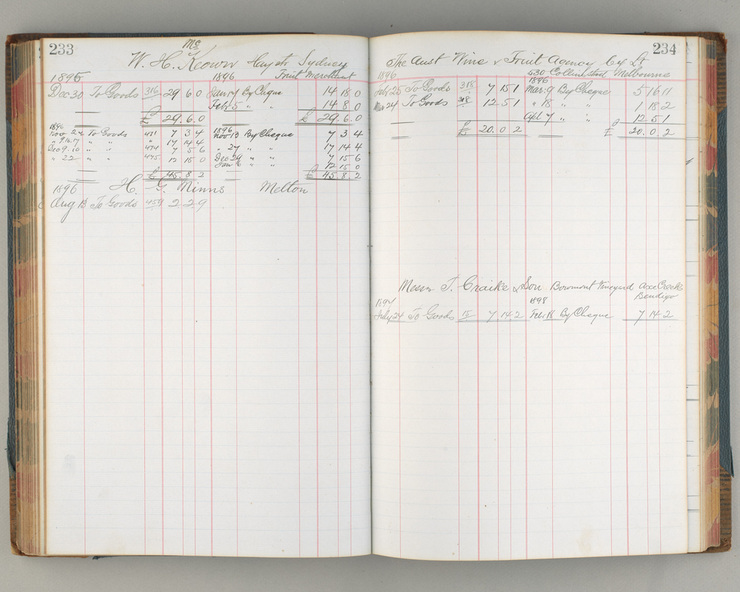 233
W. H. McKeown Hay st. Sydney
1895 1896 Fruit Merchant
Dec 30 To Goods 29 6 0 Jany 7 By Cheque 14 18 0
Feb 5 " " 14 8 0
£ 29. 6. 0 £ 29. 6. 0
1896 1896
To Goods 7 3 4 Nov 18 By Cheque 7 3 4
" 17 14 4 " 27 " 17 14 4
" " 7 5 6 7 15 6
" 22 " " 12 15 0 " " 12 15 0
£ 45. 8. 2 £ 45. 8. 2
1896 H. Minns Melton
Aug 18 To Goods 459 2 2 9
234
The Aust Wine & Fruit Agency Coy Lt
1896 530 Collins Street Melbourne
1896
Feb 25 To Goods 315 7 15 1 Mar. 9 By Cheque 5 16 11
Mar 24 To Goods 318 12. 5 1 " 18 " " 1 18 2
Apl 7 " " 12. 5 1
£ 20. 0 2 £ 20. 0. 2
Messrs T. Craike & Son Bowmont Vineyard Axe Creek
Bendigo
1897 1898
July 24 To Goods 7 14 2 Feb. 18 By Cheque 7 14 2